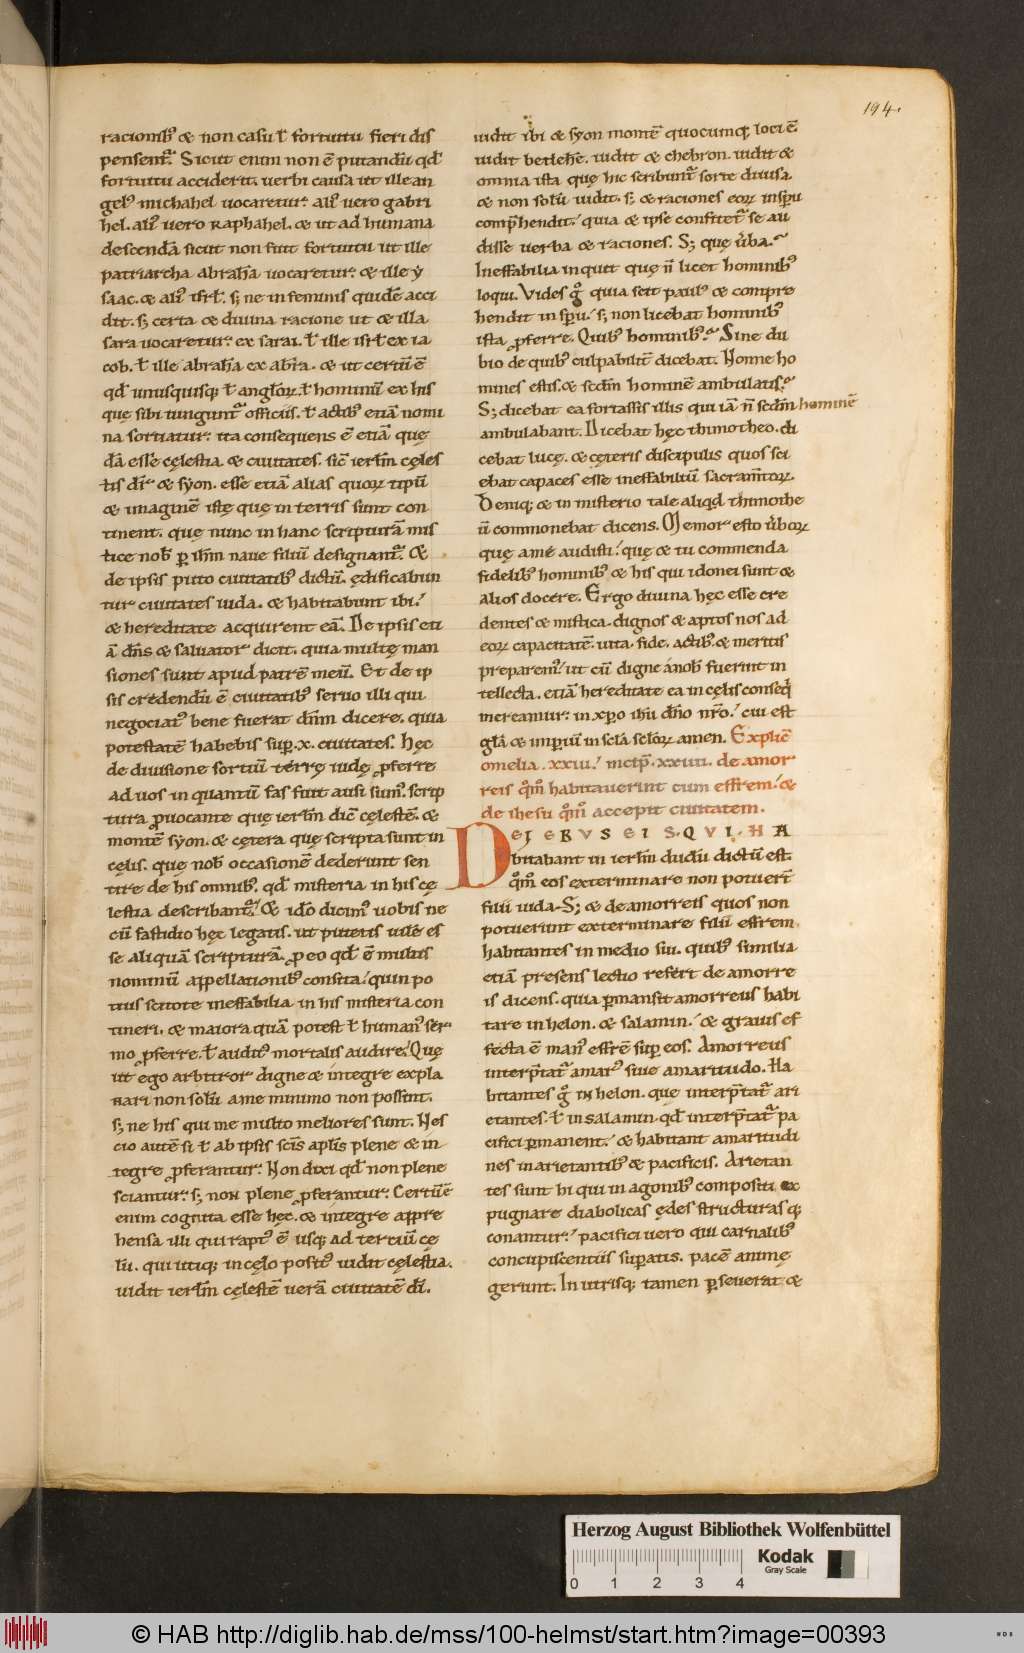 194.
racionib᷒ & non casu ł fortuitu fieri dis
pensent᷑. Sicut enim non ē putandū qđ
fortuitu acciderit. uerbi causa ut ille an
gel᷒ michahel uocaretur. ali᷒ uero gabri
hel. ali᷒ uero raphahel. & ut ad humana
descendā sicut non fuit fortuitu ut ille
patriarcha abrahā uocaretur. & ille y
saac. & ali᷒ isrł. s; ne in feminis quidē acci
dit. s; certa & diuina racione ut & illa
sara uocaretur. ex sarai. ł ille isrł ex ia
cob. ł ille abrahā ex abrā. & ut certū ē
qđ unusquisq; ł anglo℞. ł hominū ex his
quę sibi iungunt᷑ officiis. ł actib᷒ etiā nomi
na sortiatur. ita consequens ē etiā quę
dā esse cęlestia & ciuitates. sic̄ ierłm cęles
tis dr̄. & syon. esse etiā alias quo℞ tipū
& imaginē istę quę in terris sunt con
tinent. quę nunc in hanc scripturā mis
tice nob̄ ꝑ ihm̄ naue filiū designant᷑. &
de ipsis puto ciuitatib᷒ dictū. ędificabun
tur ciuitates iuda. & habitabunt ibi.
& hereditate acquirent eā. De ipsis eti
ā dn̄s & saluator dicit. quia multę man
siones sunt apud patrē meū. Et de ip
sis credendū ē ciuitatib᷒ seruo illi qui
negociat᷒ bene fuerat dn̄m dicere. quia
potestatē habebis suꝑ .x. ciuitates. Hęc
de diuisione sortiū terrę iudę ꝓferre
ad uos in quantū fas fuit ausi sum᷒. scrip
tura ꝓuocante quę ierłm dic̄ cęlestē. &
montē syon. & cętera quę scripta sunt in
cęlis. quę nob̄ occasionē dederunt sen
tire de his omnib᷒. qđ misteria in his cę
lestia describant᷑. & ido dicim᷒ uobis ne
cū fastidio hęc legatis. ut putetis uilē es
se aliquā scripturā. ꝓ eo qđ ē multis
nominū appellationib᷒ consita. quin po
tius scitote ineffabilia in his misteria con
tineri. & maiora quā potest ł human᷒ ser
mo ꝓferre. ł audit᷒ mortalis audire. Quę
ut ego arbitror digne & integre expla
nari non solū a me minimo non possint.
s; ne his qui me multo meliores sunt. Nes
cio autē si ł ab ipsis scīs apłis plene & in
tegre ꝓferantur. Non dixi qđ non plene
sciantur. s; non plene ꝓferantur. Certū ē
enim cognita esse hęc. & integre appre
hensa illi qui rapt᷒ ē usq; ad tertiū cę
lū. qui utiq; in cęlo posit᷒ uidit cęlestia.
uidit ierłm cęlestē uerā ciuitatē dī.
uidit ibi & syon montē quocumq; loci ē.
uidit betlehē. uidit & chebron. uidit &
omnia ista quę hic scribunt᷑ sorte diuisa
& non solū uidit. s; & raciones eo℞ in spū
comp̄hendit. quia & ipse confitet᷑ se au
disse uerba & raciones. S; quę ūba.
Ineffabilia inquit quę n̄ licet hominib᷒
loqui. Vides gͦ quia scit paul᷒ & compre
hendit in spū. s; non licebat hominib᷒
ista ꝓferre. Quib᷒ hominib᷒. Sine du
bio de quib᷒ culpabilit̄ dicebat. Nonne ho
mines estis. & scdm̄ hominē ambulatis.
S; dicebat ea fortassis illis qui iā n̄ scdm̄ hominē
ambulabant. Dicebat hęc thimotheo. di
cebat lucę. & cęteris discipulis quos sci
ebat capaces esse ineffabiliū sacram̄to℞.
Deniq; & in misterio tale aliqd thimothe
ū commonebat dicens. Memor esto ūbo℞
quę a me audisti. quę & tu commenda
fidelib᷒ hominib᷒ & his qui idonei sunt &
alios docere. Ergo diuina hęc esse cre
dentes & mistica. dignos & aptos nos ad
eo℞ capacitatē. uita. fide. actib᷒. & meritis
preparem᷒. ut cū digne a nob̄ fuerint in
tellecta. etiā hereditate ea in cęlis conseq̄
mereamur. in xp̄o ihū dn̄o nr̄o. cui est
glā & imperiū in sclā sclo℞ amen. Explic̄
omelia .xxiii. incip̄ .xxiiii. de amor
reis qm̄ habitauerint cum effrem. &
de ihesu qm̄ accepit ciuitatem.
DE IEBVSEIS. QVI. HA
bitabant in ierłm dudū dictū est.
qm̄ eos exterminare non potuer̄t
filii iuda. S; & de amorreis quos non
potuerunt exterminare filii effrem
habitantes in medio sui. quib᷒ similia
etiā presens lectio refert de amorre
is dicens. quia ꝑmansit amorreus habi
tare in helon. & salamin. & grauis ef
fecta ē man᷒ effrē suꝑ eos. Amorreus
interp̄tat᷑ amar᷒ siue amaritudo. Ha
bitantes gͦ in helon. quę interp̄tat᷑ ari
etantes. ł in salamin. qđ interp̄tat᷑ pa
cifici ꝑmanent. & habitant amaritudi
nes in arietantib᷒ & pacificis. Arietan
tes sunt hi qui in agonib᷒ compositi ex
pugnare diabolicas ędes structurasq;
conantur. pacifici uero qui carnalib᷒
concupiscentiis suꝑatis. pacē animę
gerunt. In utrisq; tamen ꝑseuerat &
Herzog August Bibliothek Wolfenbüttel
0 1 2 3 4
Kodak
Gray Scale
© HAB http://diglib.hab.de/mss/100-helmst/start.htm?image=00393